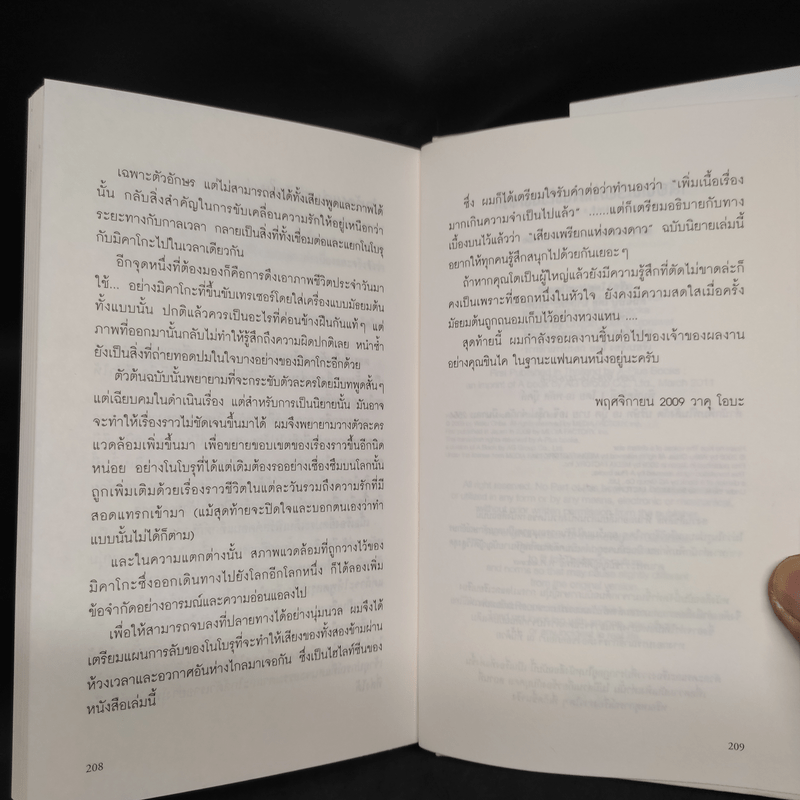 เฉพาะตัวอักษร แต่ไม่สามารถส่งได้ทั้งเสียงพูดและภาพได้
นั้น กลับสิ่งสำคัญในการขับเคลื่อนความรักให้อยู่เหนือกว่า
ระยะทางกับกาลเวลา กลายเป็นสิ่งที่ทั้งเชื่อมต่อและแยกโนโบรุ
กับมิคาโกะไปในเวลาเดียวกัน
อีกจุดหนึ่งที่ต้องมองก็คือการดึงเอาภาพชีวิตประจำวันมา
ใช้... อย่างมิคาโกะที่ขึ้นขับเทรเซอร์โดยใส่เครื่องแบบมัธยมต้น
ทั้งแบบนั้น ปกติแล้วควรเป็นอะไรที่ค่อนข้างฝืนกันแท้ๆ แต่
ภาพที่ออกมานั้นกลับไม่ทำให้รู้สึกถึงความผิดปกติเลย หนำซ้ำ
ยังเป็นสิ่งที่ถ่ายทอดปมในใจบางอย่างของมิคาโกะอีกด้วย
ตัวต้นฉบับนั้นพยายามที่จะกระชับตัวละครโดยมีบทพูดสั้นๆ
แต่เฉียบคมในดำเนินเรื่อง แต่สำหรับการเป็นนิยายนั้น มันอาจ
จะทำให้เรื่องราวไม่ชัดเจนขึ้นมาได้ ผมจึงพยายามวางตัวละคร
แวดล้อมเพิ่มขึ้นมา เพื่อขยายขอบเขตของเรื่องราวขึ้นอีกนิด
หน่อย อย่างโนโบรุที่ได้แต่เดิมต้องรออย่างเซื่องซึมบนโลกนั้น
ถูกเพิ่มเติมด้วยเรื่องราวชีวิตในแต่ละวันรวมถึงความรักที่มี
สอดแทรกเข้ามา (แม้สุดท้ายจะปิดใจและบอกตนเองว่าทำ
แบบนั้นไม่ได้ก็ตาม)
และในความแตกต่างนั้น สภาพแวดล้อมที่ถูกวางไว้ของ
มิคาโกะซึ่งออกเดินทางไปยังโลกอีกโลกหนึ่ง ก็ได้ลองเพิ่ม
ข้อจำกัดอย่างอารมณ์และความอ่อนแอลงไป
เพื่อให้สามารถจบลงที่ปลายทางได้อย่างนุ่มนวล ผมจึงได้
เตรียมแผนการลับของโนโบรุที่จะทำให้เสียงของทั้งสองข้ามผ่าน
ห้วงเวลาและอวกาศอันห่างไกลมาเจอกัน ซึ่งเป็นไฮไลท์ซีนของ
หนังสือเล่มนี้
208
ซึ่ง ผมก็ได้เตรียมใจรับคำต่อว่าทำนองว่า "เพิ่มเนื้อเรื่อง
มากเกินความจำเป็นไปแล้ว" ......แต่ก็เตรียมอธิบายกับทาง
เบื้องบนไว้แล้วว่า "เสียงเพรียกแห่งดวงดาว" ฉบับนิยายเล่มนี้
อยากให้ทุกคนรู้สึกสนุกไปด้วยกันเยอะๆ
ถ้าหากคุณโตเป็นผู้ใหญ่แล้วยังมีความรู้สึกที่ตัดไม่ขาดล่ะก็
คงเป็นเพราะที่ซอกหนึ่งในหัวใจ ยังคงมีความสดใสเมื่อครั้ง
มัธยมต้นถูกถนอมเก็บไว้อย่างหวงแหน ....
สุดท้ายนี้ ผมกำลังรอผลงานชิ้นต่อไปของเจ้าของผลงาน
อย่างคุณชินไค ในฐานะแฟนคนหนึ่งอยู่นะครับ
พฤศจิกายน 2009 วาคุ โอบะ
209